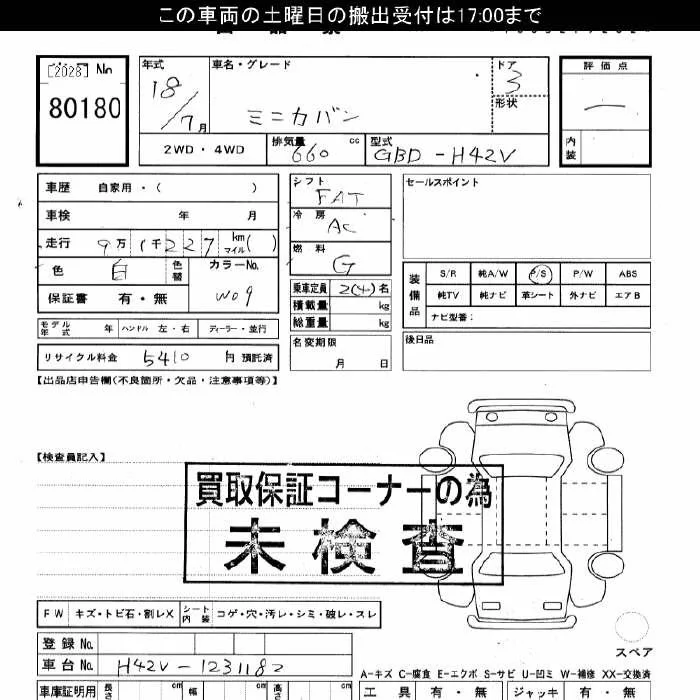 この車両の土曜日の搬出受付は17:00まで
[2028] No
80180
年式 車名・グレード ドア 評価点
18/7月 ミニカバン 3 一
形状
2WD・4WD 排気量 660 cc 型式 GBD-H42V 内装
車歴 自家用・( )
車検 年 月
走行 9万1千227 km マイル( )
色 白 色替 カラーNo. W09
保証書 有・無
モデル年式 年 ハンドル 左・右 ディーラー・並行
リサイクル料金 5410 円 預託済
シフト FAT
冷房 AC
燃料 G
乗車定員 2(4)名
積載量 kg
総重量 kg
名変期限
月 日
セールスポイント
装備品 S/R 純A/W P/S P/W ABS
純TV 純ナビ 革シート 外ナビ エアB
ナビ型番:
後日品
【出品店申告欄(不良箇所・欠品・注意事項等)】
【検査員記入】
買取保証コーナーの為
未検査
FW キズ・トビ石・割レX シート内装 コゲ・穴・汚レ・シミ・破レ・スレ
登録No.
車台No. H42V-1231182
スペア
A-キズ C-腐食 E-エクボ S-サビ U-凹ミ W-補修 XX-交換済
車庫証明用 長さ cm 幅 cm 高さ cm 工具 有・無 ジャッキ 有・無